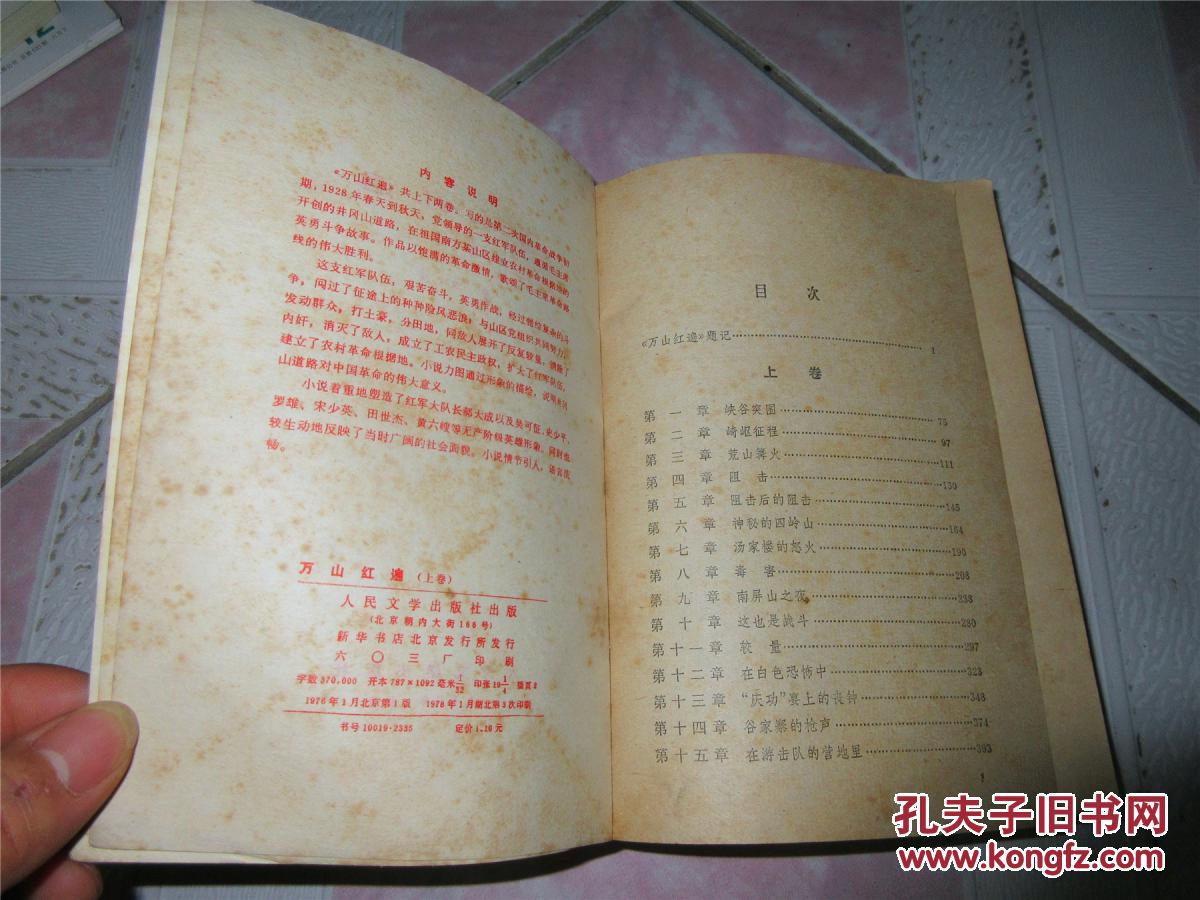 内容说明
《万山红遍》共上下两卷。写的是第二次国内革命战争初
期，1928年春天到秋天，党领导的一支红军队伍，遵循毛主席
开创的井冈山道路，在祖国南方某山区建立农村革命根据地的
英勇斗争故事。作品以饱满的革命激情，歌颂了毛主席革命路
线的伟大胜利。
这支红军队伍，艰苦奋斗，英勇作战，经过错综复杂的斗
争，闯过了征途上的种种险风恶浪；与山区党组织共同努力，
发动群众，打土豪，分田地，同敌人展开了反复较量，清除了
内奸，消灭了敌人，成立了工农民主政权，扩大了红军队伍，
建立了农村革命根据地。小说力图通过形象的描绘，说明井冈
山道路对中国革命的伟大意义。
小说着重地塑造了红军大队长郝大成以及吴可征、史少平、
罗雄、宋少英、田世杰、黄六嫂等无产阶级英雄形象。同时也
较生动地反映了当时广阔的社会面貌。小说情节引人，语言流
畅。
万山红遍（上卷）
人民文学出版社出版
（北京朝内大街166号）
新华书店北京发行所发行
六〇三厂印刷
字数370,000 开本787×1092毫米1/32 印张19 1/4 插页2
1976年1月北京第1版 1978年1月湖北第3次印刷
书号10019·2335 定价1.10元
目次
《万山红遍》题记 1
上卷
第一章 峡谷突围 75
第二章 崎岖征程 97
第三章 荒山篝火 111
第四章 阻击 130
第五章 阻击后的阻击 145
第六章 神秘的四岭山 164
第七章 汤家楼的怒火 190
第八章 毒害 208
第九章 南屏山之夜 238
第十章 这也是战斗 280
第十一章 较量 297
第十二章 在白色恐怖中 323
第十三章 “庆功”宴上的丧钟 348
第十四章 谷家寨的枪声 374
第十五章 在游击队的营地里 393
1
孔夫子旧书网
www.kongfz.com